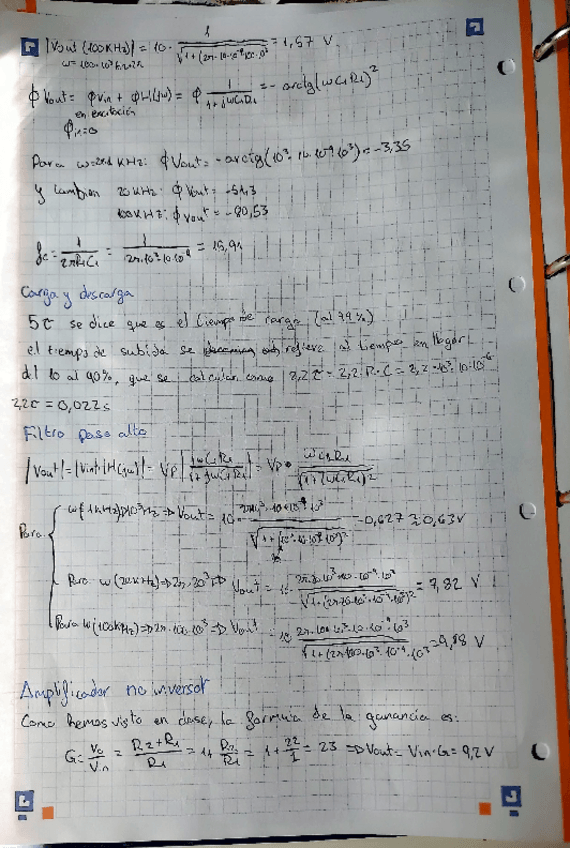 |Vout (100KHz)| = 10 · 1 / √(1+(2π·10·10⁻⁹·100·10³)² = 1,57 V
ϕVout = ϕvin + ϕH(jω) = ϕ 1 / 1+jωC₁R₁ = - arctg(ωC₁R₁)²
en excitación
ϕin=0
Para KHz: ϕVout = -arctg(10³·10·10⁻⁹·10³) = -3,35
y tambien 20KHz: ϕVout = -51,3
100KHz: ϕVout = -80,53
fc = 1 / 2πR₁C₁ = 1 / 2π·10³·10·10⁻⁹ = 15,91
Carga y descarga
5τ se dice que es el tiempo de carga (al 99%)
el tiempo de subida se refiere al tiempo en llegar
del 10 al 90%, que se calcula como 2,2τ = 2,2·R·C = 2,2·10³·10·10⁻⁶
2,2τ = 0,022s
Filtro paso alto
|Vout| = |Vin|·|H(jω)| = Vp |jωC₁R₁ / 1+jωC₁R₁| = Vp · ωC₁R₁ / √(1+(ωC₁R₁)²
Para ω(1KHz) 10³Hz => Vout = 10 · 10³·10·10⁻⁹·10³ / = 0,627 ≈ 0,63V
Para ω(20KHz) => 2π·20³ => Vout = 10³·10·10⁻⁹·10³ / = 7,82 V
Para ω(100KHz) => 2π·100·10³ => Vout = 10 2π·100·10³·10·10⁻⁹·10³ / √(1+(2π·100·10³·10⁻⁹·10³ = 9,88 V
Amplificador no inversor
Como hemos visto en clase, la formula de la ganancia es:
G = Vo / Vin = R2+R₁ / R₁ = 1+ R2 / R₁ = 1 + 22 / 1 = 23 => Vout = Vin·G = 9,2V